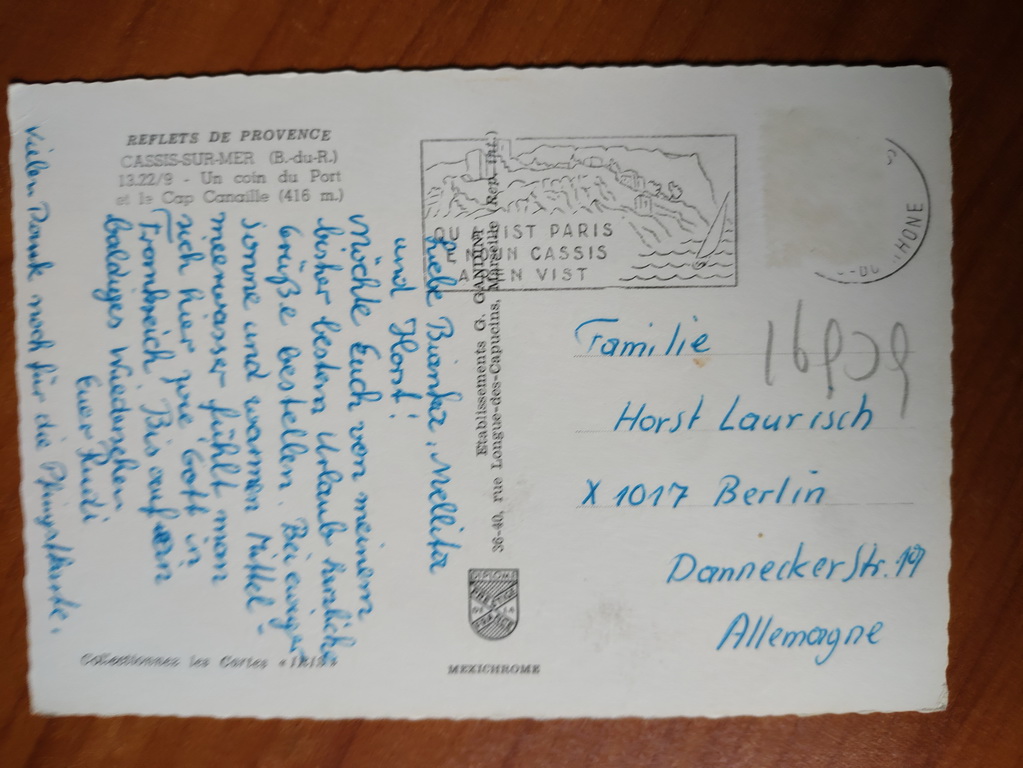 REFLETS DE PROVENCE
CASSIS-SUR-MER (B.-du-R.)
13.22/9 - Un coin du Port
et le Cap Canaille (416 m.)
Liebe Bianka, Mellitta
und Horst!
Möchte Euch von meinem
bisher besten Urlaub herzliche
Grüße bestellen. Bei ewiger
Sonne und warmen Mittel-
meerwasser fühlt man
sich hier wie Gott in
Frankreich. Bis auf ein
baldiges Wiedersehen
Euer Rudi
Vielen Dank noch für die Pfingstkarte.
Collectionnez les Cartes « IRIS »
QU VIST PARIS
E NOUN CASSIS
A REN VIST
Etablissements G. GANDINI
36-40, rue Longue-des-Capucins, Marseille (Rep. int.)
DIPLOME
PRESTIGE
FRANCE
MEXICHROME
-DU HONE
16909
Familie
Horst Laurisch
X 1017 Berlin
Dannecker Str. 19
Allemagne